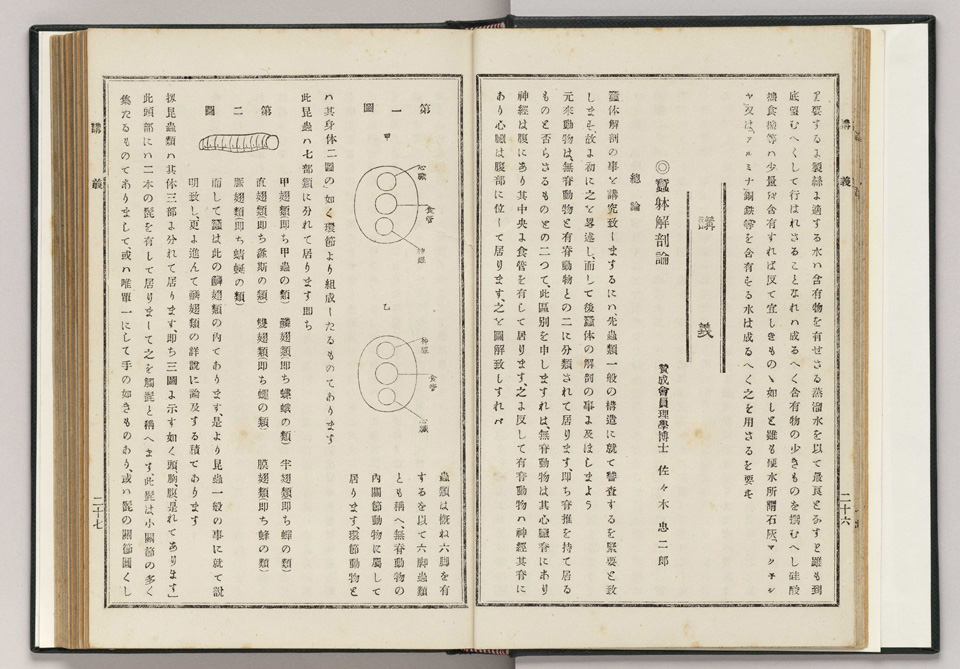 講義
二十六
ア要するよ製絲よ適する水ハ含有物を有せさる蒸溜水を以て最良とみすと雖も到
底望むへくして行はれさることなれハ成るへく含有物の少きものを撰むへし硅酸
機食物等ハ少量を含有すれば反て宜しきものゝ如しと雖も硬水所謂石灰、マクチシ
ヤ又は、アルミナ、銅鉄等を含有をる水は成るへく之を用さるを要を
講義
◎蠶躰解剖論
賛成會員理學博士 佐々木忠二郎
總論
蠶体解剖の事を講究致しまするにハ、先蟲類一般の構造に就て審査するを緊要と致
しまを故よ初に之を畧述し、而して後蠶体の解剖の事よ及ほしまよう
元來動物は、無脊動物と有脊動物との二に分類されて居ります、即ち脊推を持て居る
ものと否らさるものとの二つて、此區別を申しますれは、無脊動物は其心臓脊にあり
神經は腹にあり其中央よ食管を有して居ります、之よ反して有脊動物ハ神經其脊に
あり心臓は腹部に位して居ります、之を圖解致しすれバ
第一圖
甲
心臓
食管
神經
乙
神經
食管
心臓
蟲類は概ね六脚を有
するを以て六脚蟲類
とも稱へ、無脊動物の
内關節動物に屬して
居ります、環節動物と
ハ其身体二圖の」如く環節より組成したるものてあります
此昆蟲ハ七部類に分れて居ります即ち
第二圖
甲翅類(即ち甲蟲の類) 鱗翅類(即ち蝶蛾の類) 半翅類(即ち蟬の類)
直翅類(即ち螽斯の類) 雙翅類(即ち蠅の類) 膜翅類(即ち蜂の類)
脈翅類(即ち蜻蜓の類)
而して蠶は此の鱗翅類の内であります、是より昆蟲一般の事に就て說
明致し、更よ進んて鱗翅類の詳說に論及する積てあります
抑昆蟲類ハ其体三部よ分れて居ります、即ち三圖よ示す如く頭胸腹是れてあります」
此頭部にハ二本の髭を有して居りまして之を觸髭と稱へます、此髭は小關節の多く
集たるものてありまして、或ハ唯單一にして手の如きものあり、或ハ髭の關節圓くし
講義
二十七